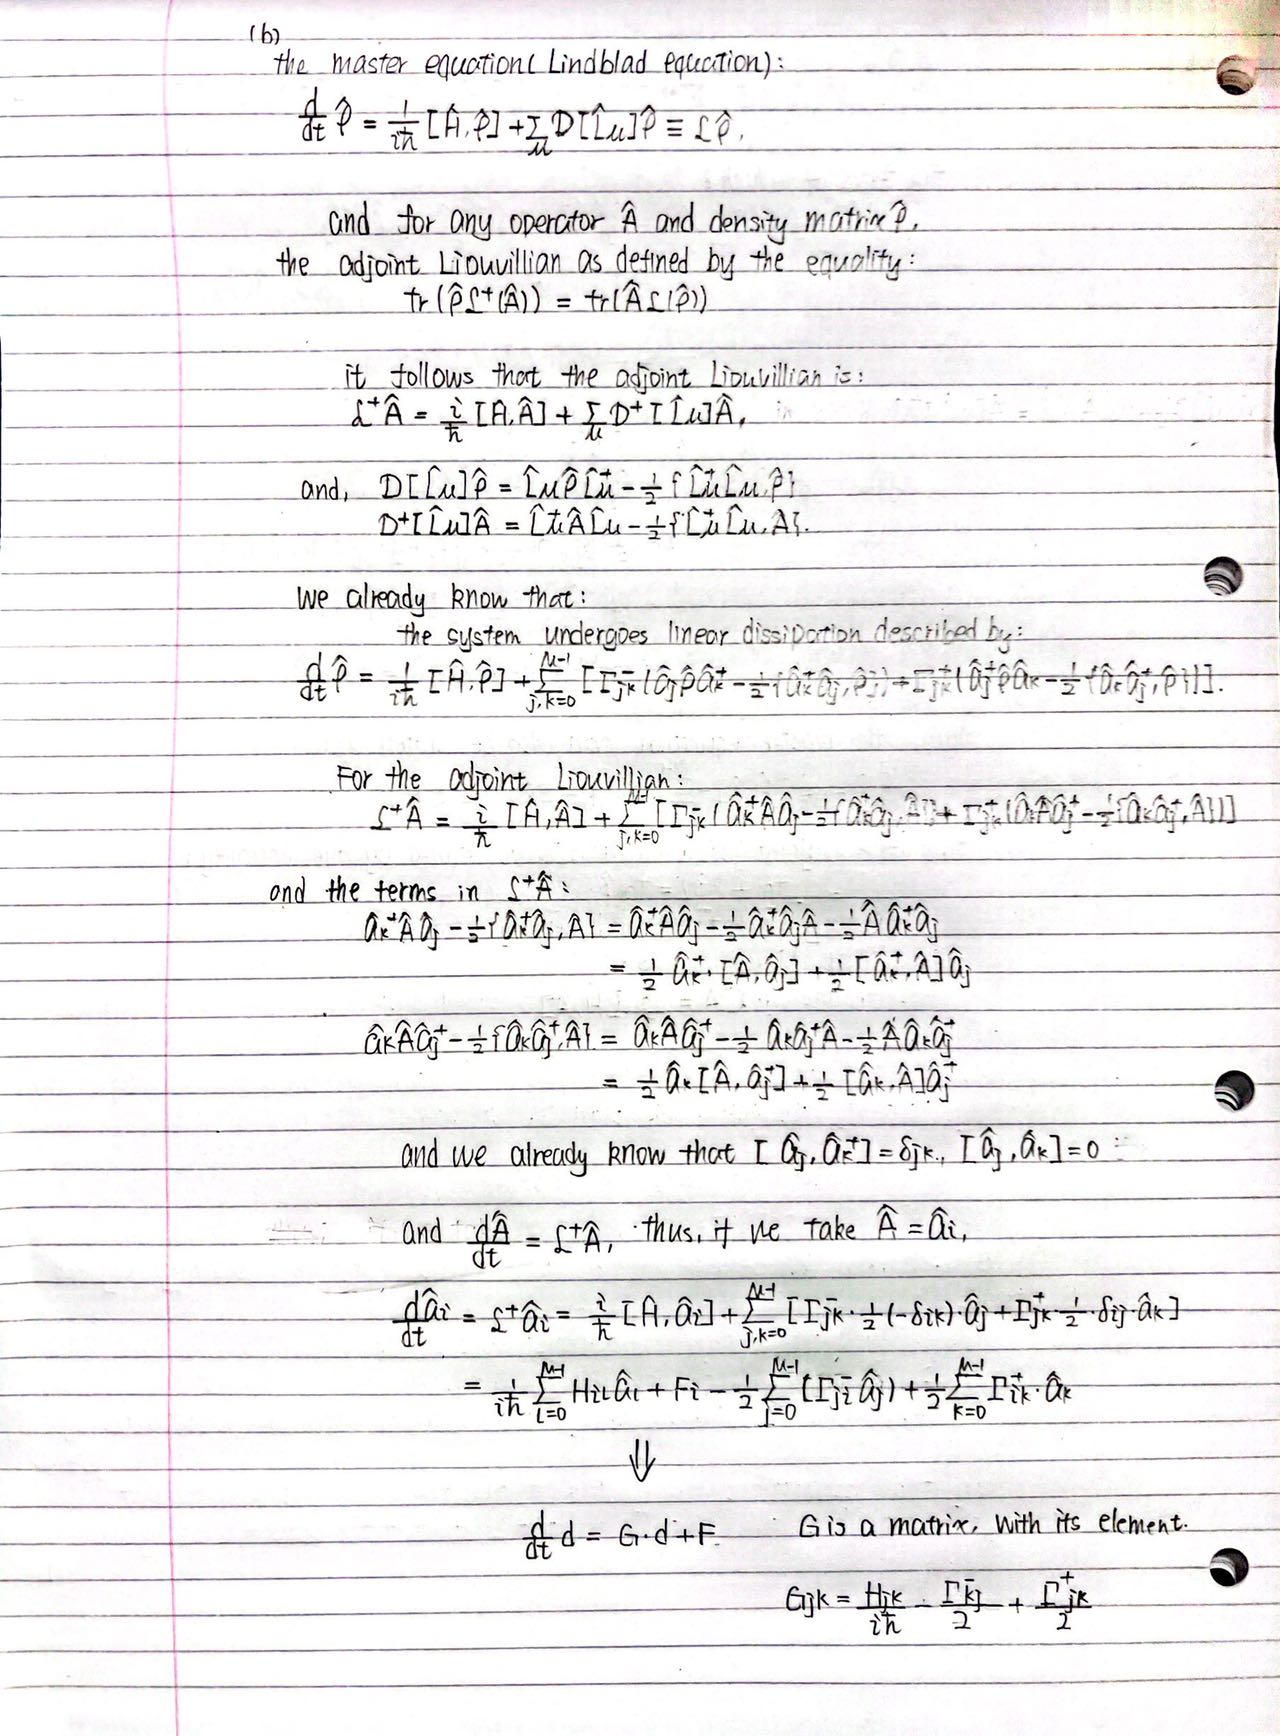 (b)
the master equation (Lindblad equation):
d/dt ρ̂ = 1/iħ [Ĥ, ρ̂] + Σ_μ D[L̂_μ]ρ̂ ≡ ℒρ̂.
and for any operator Â and density matrix ρ̂,
the adjoint Liouvillian as defined by the equality:
tr(ρ̂ℒ⁺(Â)) = tr(Âℒ(ρ̂))
it follows that the adjoint Liouvillian is:
ℒ⁺Â = i/ħ [Ĥ, Â] + Σ_μ D⁺[L̂_μ]Â,
and, D[L̂_μ]ρ̂ = L̂_μ ρ̂ L̂_μ⁺ - 1/2 {L̂_μ⁺ L̂_μ, ρ̂}
D⁺[L̂_μ]Â = L̂_μ⁺ Â L̂_μ - 1/2 {L̂_μ⁺ L̂_μ, Â}.
We already know that:
the system undergoes linear dissipation described by:
d/dt ρ̂ = 1/iħ [Ĥ, ρ̂] + Σ_{j,k=0}^{M-1} [Γ⁻_jk (â_j ρ̂ â_k⁺ - 1/2 {â_k⁺ â_j, ρ̂}) + Γ⁺_jk (â_j⁺ ρ̂ â_k - 1/2 {â_k â_j⁺, ρ̂})].
For the adjoint Liouvillian:
ℒ⁺Â = i/ħ [Ĥ, Â] + Σ_{j,k=0}^{M-1} [Γ⁻_jk (â_k⁺ Â â_j - 1/2 {â_k⁺ â_j, Â}) + Γ⁺_jk (â_k Â â_j⁺ - 1/2 {â_k â_j⁺, Â})]
and the terms in ℒ⁺Â:
â_k⁺ Â â_j - 1/2 {â_k⁺ â_j, Â} = â_k⁺ Â â_j - 1/2 â_k⁺ â_j Â - 1/2 Â â_k⁺ â_j
= 1/2 â_k⁺ · [Â, â_j] + 1/2 [â_k⁺, Â] â_j
â_k Â â_j⁺ - 1/2 {â_k â_j⁺, Â} = â_k Â â_j⁺ - 1/2 â_k â_j⁺ Â - 1/2 Â â_k â_j⁺
= 1/2 â_k [Â, â_j⁺] + 1/2 [â_k, Â] â_j⁺
and we already know that [â_j, â_k⁺] = δ_jk, [â_j, â_k] = 0
and dÂ/dt = ℒ⁺Â, thus, if we take Â = â_i,
dâ_i/dt = ℒ⁺â_i = i/ħ [Ĥ, â_i] + Σ_{j,k=0}^{M-1} [Γ⁻_jk · 1/2 (-δ_ik) · â_j + Γ⁺_jk · 1/2 · δ_ij · â_k]
= 1/iħ Σ_{l=0}^{M-1} H_il â_l + F_i - 1/2 Σ_{j=0}^{M-1} (Γ⁻_ji â_j) + 1/2 Σ_{k=0}^{M-1} Γ⁺_ik · â_k
⇓
d/dt d = G·d + F G is a matrix, with its element.
G_jk = H_jk/iħ - Γ⁻_kj/2 + Γ⁺_jk/2